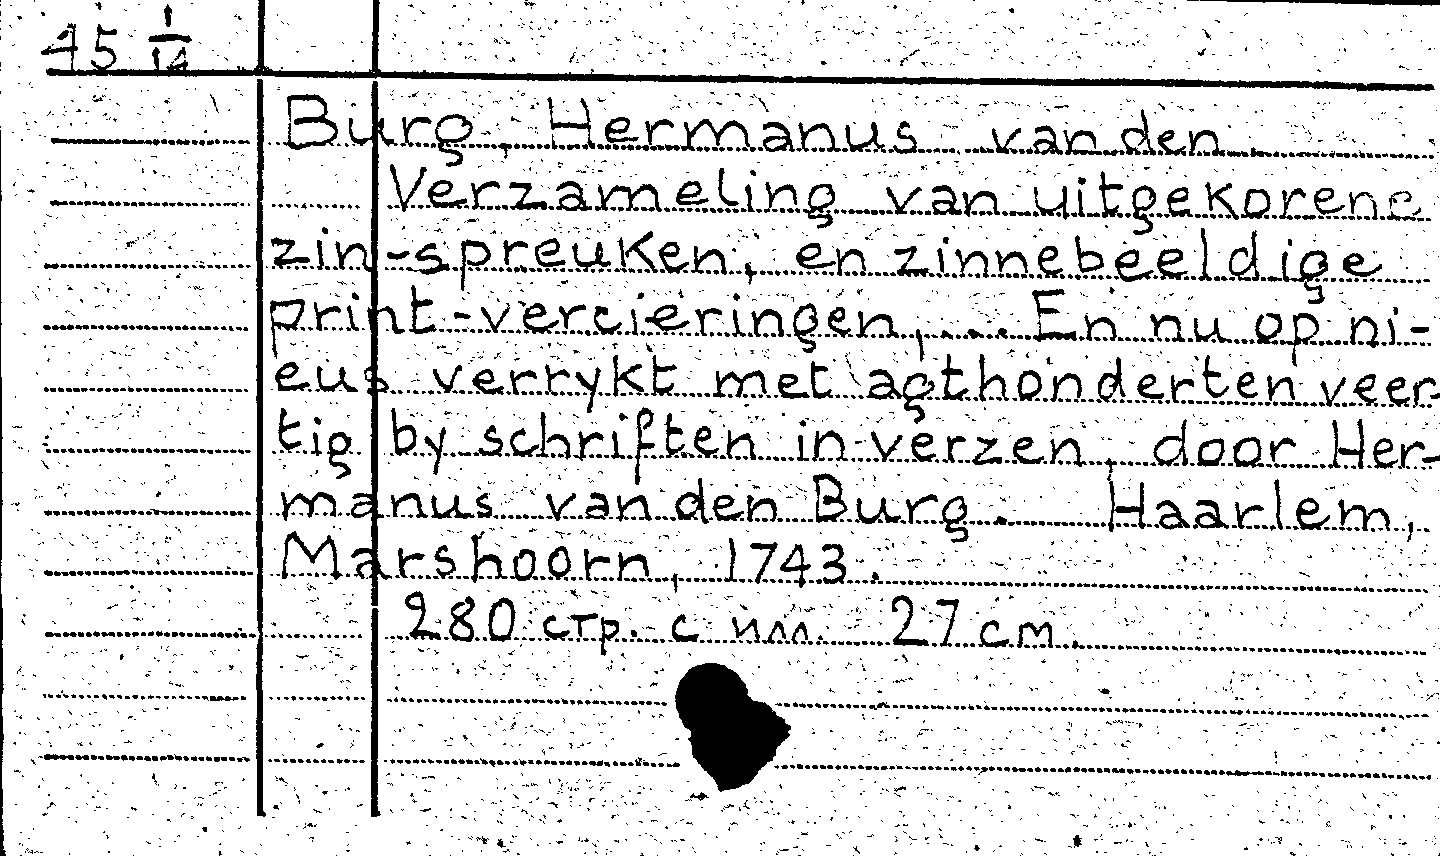 45 1/14
Burg, Hermanus van den.
Verzameling van uitgekorene
zin-spreuken, en zinnebeeldige
print-vercieringen,... En nu op ni-
eus verrykt met agthonderten veer-
tig by schriften in verzen, door Her-
manus van den Burg. Haarlem,
Marshoorn, 1743.
280 стр. с илл. 27 см.